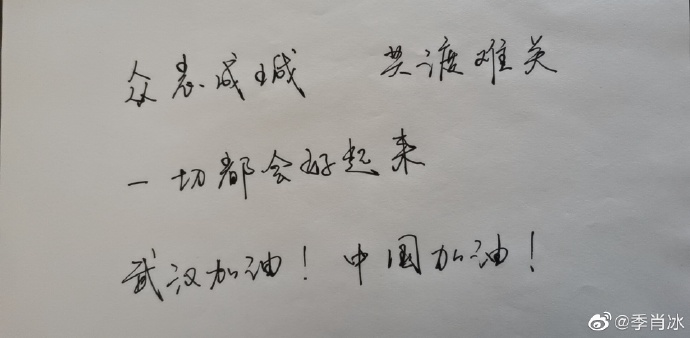 众志成城 共渡难关
一切都会好起来
武汉加油！中国加油！
@季肖冰